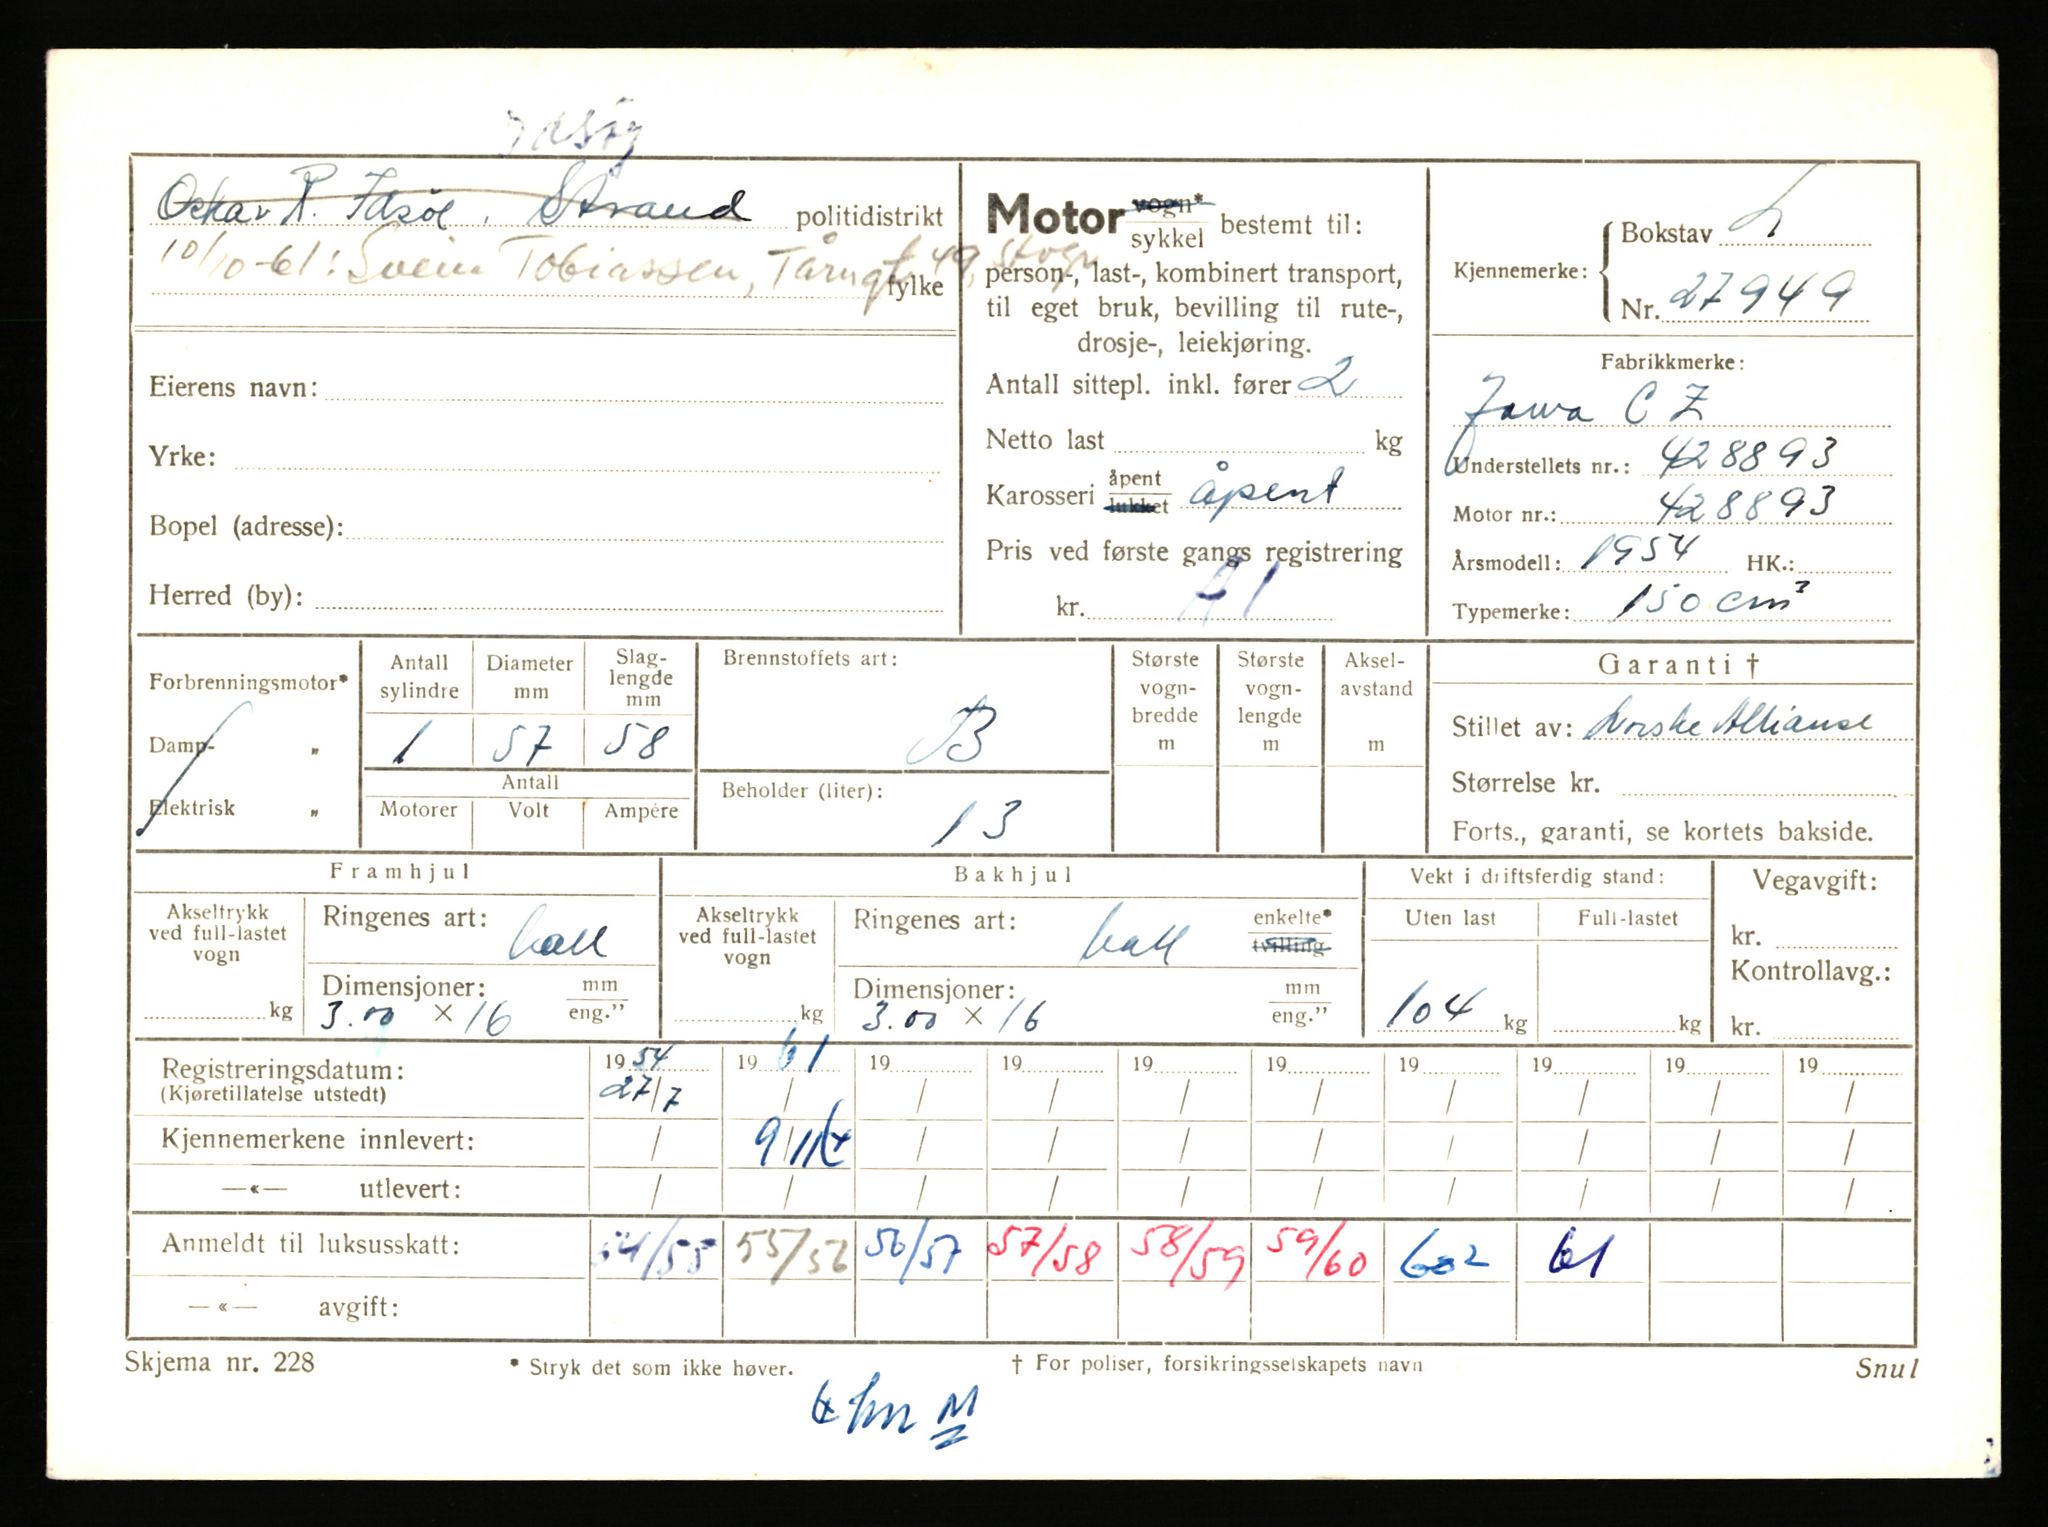 Idsøy
Oskar R. Idsöe, Strand politidistrikt
10/10-61: Svein Tobiassen, Tårngt 49,
fylke
Eierens navn:
Yrke:
Bopel (adresse):
Herred (by):
Motor vogn* sykkel bestemt til:
person-, last-, kombinert transport,
til eget bruk, bevilling til rute-,
drosje-, leiekjøring.
Antall sittepl. inkl. fører 2
Netto last kg
Karosseri åpent lukket åpent
Pris ved første gangs registrering
kr. A1
Kjennemerke: Bokstav L
Nr. 27949
Fabrikkmerke:
Jawa CZ
Understellets nr.: 428893
Motor nr.: 428893
Årsmodell: 1954 HK.:
Typemerke: 150 cm³
Forbrenningsmotor*
Damp- „
Elektrisk „
Antall sylindre Diameter mm Slag-lengde mm
1 57 58
Antall
Motorer Volt Ampére
Brennstoffets art:
B
Beholder (liter):
13
Største vogn-bredde m
Største vogn-lengde m
Aksel-avstand m
Garanti †
Stillet av: Norske Allianse
Størrelse kr.
Forts., garanti, se kortets bakside.
Framhjul
Akseltrykk ved full-lastet vogn
kg
Ringenes art: ball
Dimensjoner: mm eng.”
3.00 × 16
Bakhjul
Akseltrykk ved full-lastet vogn
kg
Ringenes art: ball enkelte* tvilling
Dimensjoner: mm eng.”
3.00 × 16
Vekt i driftsferdig stand:
Uten last Full-lastet
104 kg kg
Vegavgift:
kr.
Kontrollavg.:
kr.
Registreringsdatum: 1954 1961 19 19 19 19 19 19 19 19
(Kjøretillatelse utstedt) 27/7 / / / / / / / / /
Kjennemerkene innlevert: / 9/11 / / / / / / / /
—«— utlevert: / / / / / / / / / /
Anmeldt til luksusskatt: 54/55 55/56 56/57 57/58 58/59 59/60 602 61
—«— avgift:
Skjema nr. 228 * Stryk det som ikke høver. † For poliser, forsikringsselskapets navn Snul